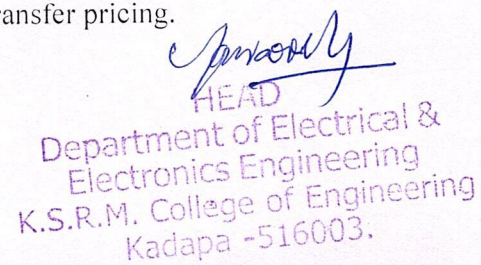 ransfer pricing.
HEAD
Department of Electrical &
Electronics Engineering
K.S.R.M. College of Engineering
Kadapa -516003.